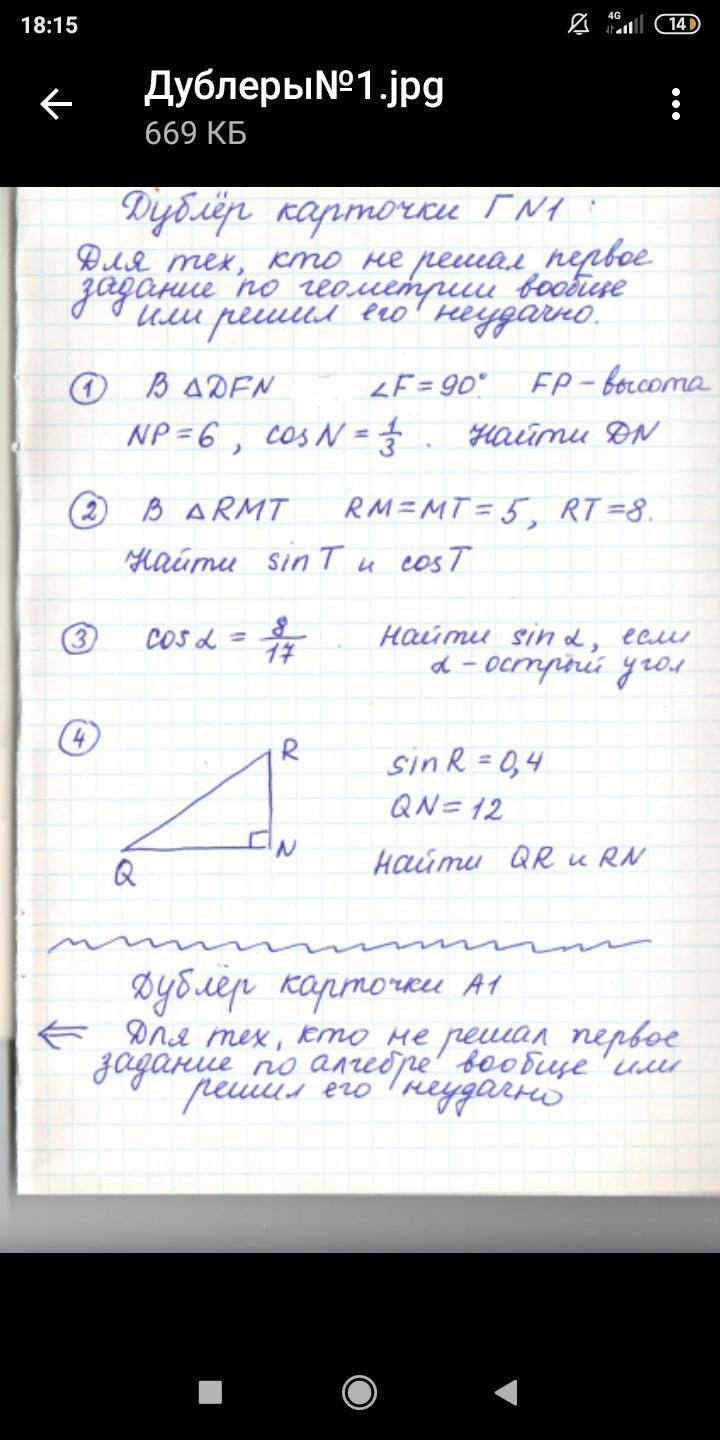 18:15
4G
14
Дублеры№1.jpg
669 КБ
Дублёр карточки Г N1 :
Для тех, кто не решал первое
задание по геометрии вообще
или решил его неудачно.
① В △DFN ∠F = 90°. FP – высота
NP = 6 , cos N = 1/3 . Найти DN
② В △RMT RM = MT = 5, RT = 8.
Найти sin T и cos T
③ cos α = 8/17 . Найти sin α, если
α – острый угол
④
R
sin R = 0,4
QN = 12
N
Найти QR и RN
Q
Дублёр карточки А1
⇐ Для тех, кто не решал первое
задание по алгебре вообще или
решил его неудачно